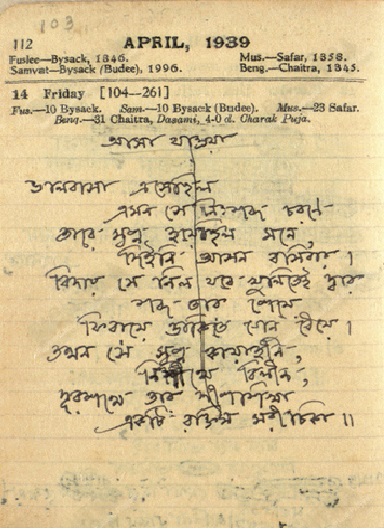 103
112 APRIL, 1939
Fuslee—Bysack, 1346. Mus.—Safar, 1358.
Samvat—Bysack (Budee), 1996. Beng.—Chaitra, 1345.
14 Friday [104—261]
Fus.—10 Bysack. Sam.—10 Bysack (Budee). Mus.—23 Safar.
Beng.—31 Chaitra, Dasami, 4-0 d. Charak Puja.
আসা যাওয়া
ভালবাসা এসেছিল
এমন সে নিঃশব্দ চরণে
তারে স্বপ্ন হয়েছিল মনে,
দিইনি আসন বসিবার।
বিদায় সে নিল যবে খুলিতেই দ্বার
শব্দ তার পেয়ে
ফিরায়ে ডাকিতে গেনু ধেয়ে।
তখন সে স্বপ্ন কায়াহীন,
নিশীথে বিলীন,
দূরপথে তার দীপশিখা
একটি রক্তিম মরীচিকা॥